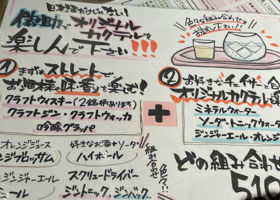 オリジナル
カクテルを
楽しんで下さい!!!
色々な組み合わせを
①まずはストレートで
お酒の味、香りを楽しむ!
クラフトウィスキー(2銘柄あります)
クラフトジン・クラフトウォッカ
吟醸グラッパ
+
お好きなチェイサーを
オリジナルカクテル
ミネラルウォーター
ソーダ・トニックウォーター
ジンジャーエール・オレンジ
オレンジジュース
ジンジャーエール
好きなお酒+ソーダ
ハイボール
スクリュードライバー
ジントニック ジンバック
どの組み合わせ